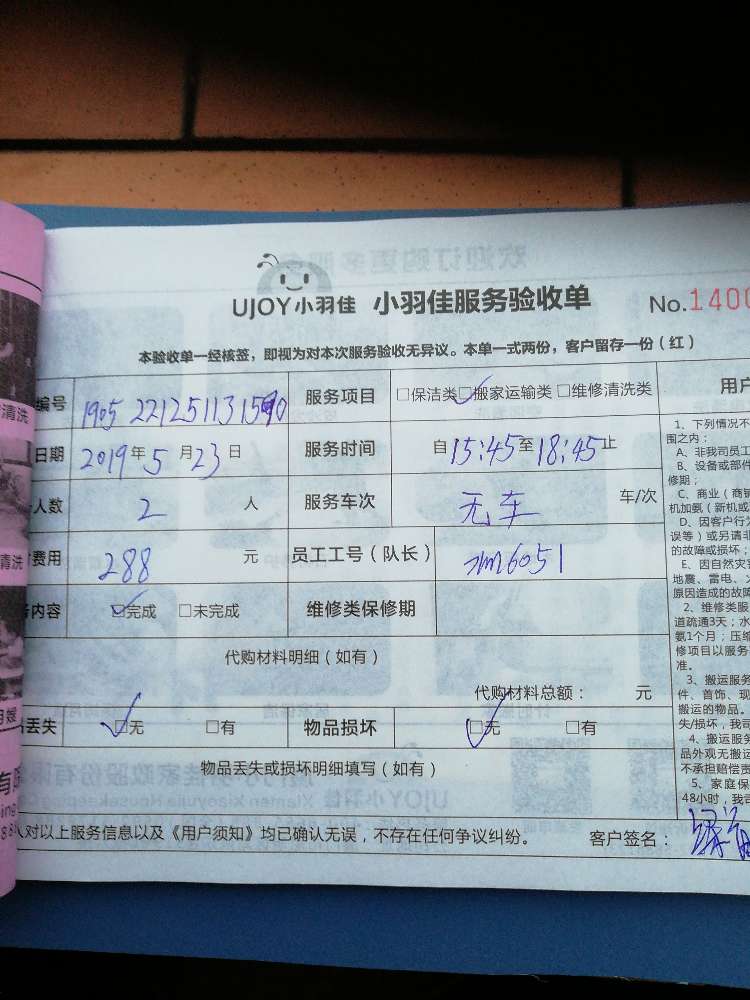 UJOY小羽佳 小羽佳服务验收单 No.1400
本验收单一经核签，即视为对本次服务验收无异议。本单一式两份，客户留存一份（红）
编号 服务项目 □保洁类□搬家运输类□维修清洗类 用户
日期 2019年5月23日 服务时间 自15:45至18:45止
人数 2 人 服务车次 无车 车/次
费用 288 元 员工工号（队长） xm6051
内容 □完成 □未完成 维修类保修期
代购材料明细（如有）
代购材料总额： 元
丢失 □无 □有 物品损坏 □无 □有
物品丢失或损坏明细填写（如有）
人对以上服务信息以及《用户须知》均已确认无误，不存在任何争议纠纷。 客户签名：
1、下列情况不
围之内：
A、非我司员工
B、设备或部件
修期；
C、商业（商铺
机加氨（新机或
D、因客户行为
误等）或另请非
的故障或损坏；
E、因自然灾害
地震、雷电、
原因造成的故障
2、维修类服
道疏通3天；水
氨1个月；压缩
修项目以服务
准。
3、搬运服务
件、首饰、现
搬运的物品。
失/损坏，我司
4、搬运服务
品外观无搬运
不承担赔偿责
5、家庭保
48小时，我司
清洗
清洗